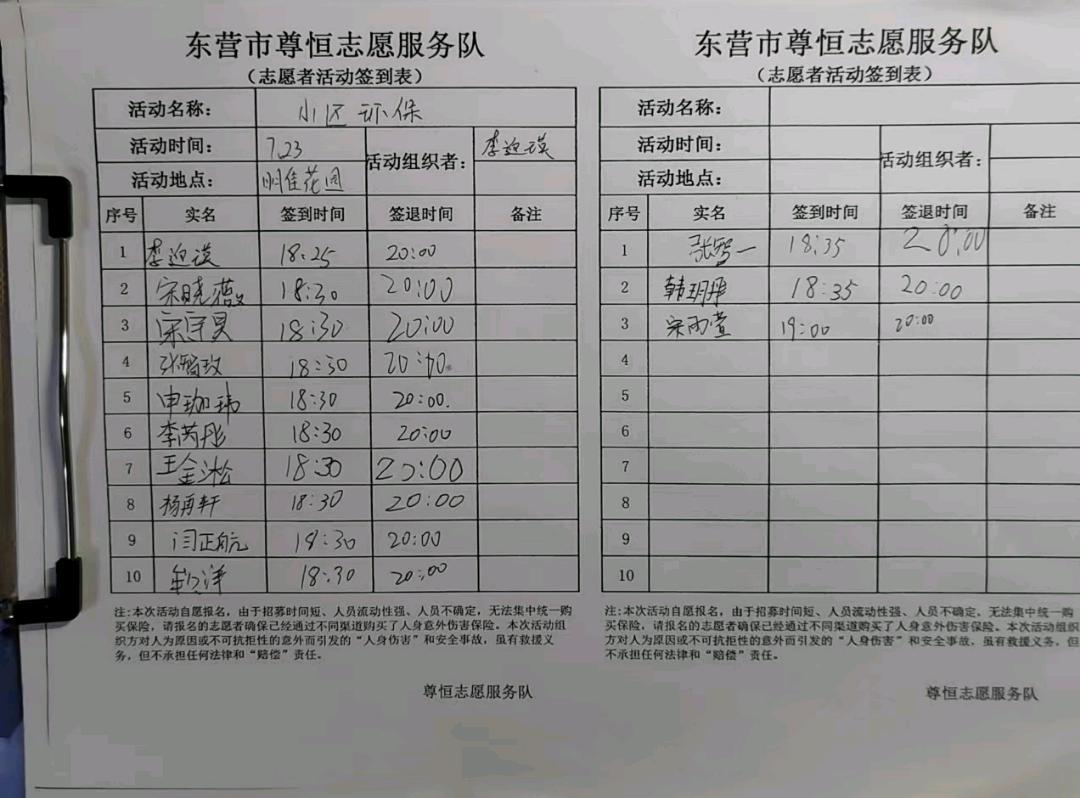 东营市尊恒志愿服务队
（志愿者活动签到表）
活动名称： 小区环保
活动时间： 7.23 活动组织者： 李迎瑛
活动地点： 明佳花园
序号 实名 签到时间 签退时间 备注
1 李迎瑛 18:25 20:00
2 宋晓薇 18:30 20:00
3 宋宇昊 18:30 20:00
4 张智玫 18:30 20:00
5 申珈玮 18:30 20:00.
6 李芮彤 18:30 20:00
7 王金淞 18:30 20:00
8 杨再轩 18:30 20:00
9 闫正航 18:30 20:00
10 18:30 20:00
注：本次活动自愿报名，由于招募时间短、人员流动性强、人员不确定，无法集中统一购
买保险，请报名的志愿者确保已经通过不同渠道购买了人身意外伤害保险。本次活动组
织方对人为原因或不可抗拒性的意外而引发的“人身伤害”和安全事故，虽有救援义
务，但不承担任何法律和“赔偿”责任。
尊恒志愿服务队
东营市尊恒志愿服务队
（志愿者活动签到表）
活动名称：
活动时间： 活动组织者：
活动地点：
序号 实名 签到时间 签退时间 备注
1 张智一 18:35 20:00
2 韩玥彤 18:35 20:00
3 宋雨萱 19:00 20:00
4
5
6
7
8
9
10
注：本次活动自愿报名，由于招募时间短、人员流动性强、人员不确定，无法集中统一购
买保险，请报名的志愿者确保已经通过不同渠道购买了人身意外伤害保险。本次活动组织
方对人为原因或不可抗拒性的意外而引发的“人身伤害”和安全事故，虽有救援义务，但
不承担任何法律和“赔偿”责任。
尊恒志愿服务队